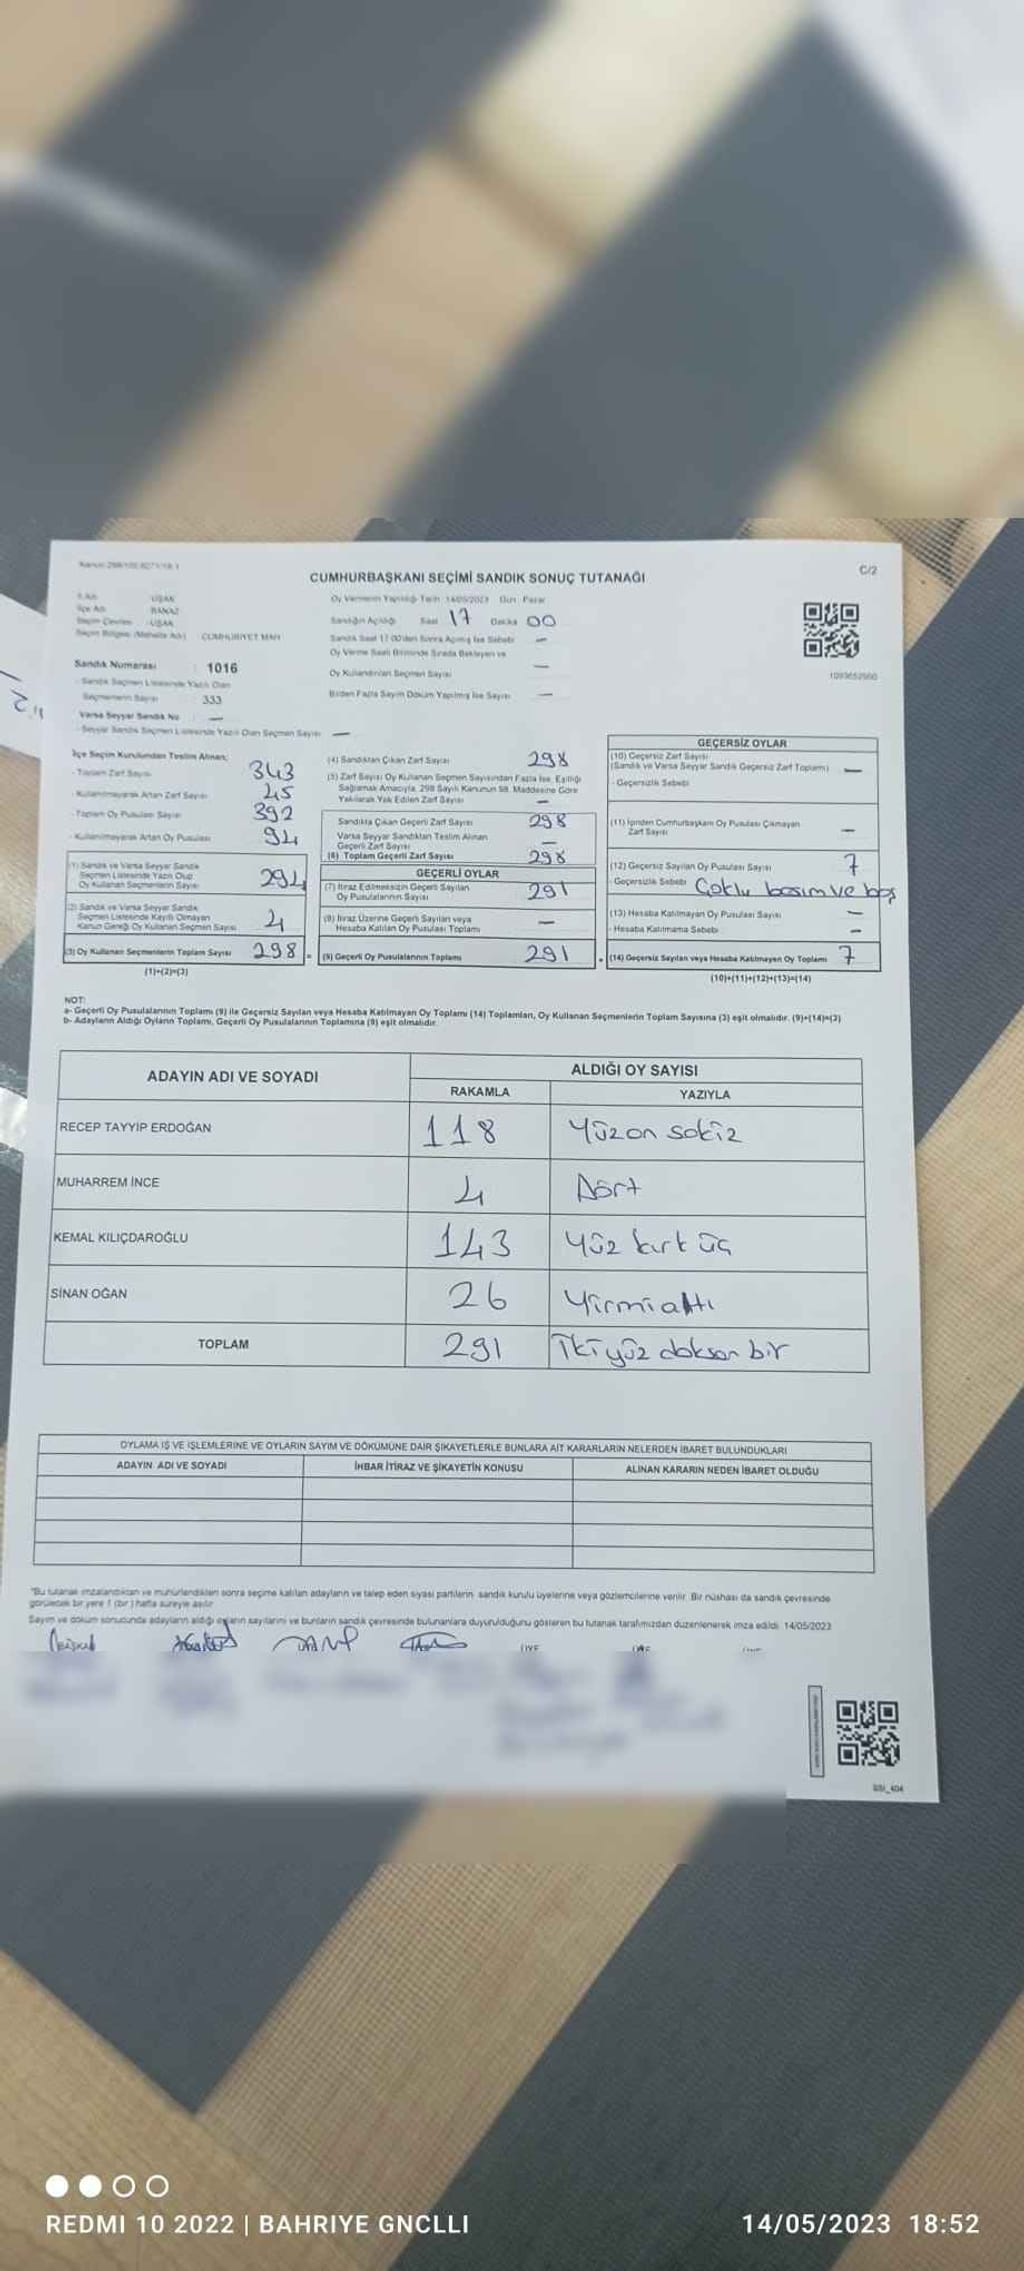 CUMHURBAŞKANI SEÇİMİ SANDIK SONUÇ TUTANAĞI
C/2
İl Adı UŞAK
İlçe Adı BANAZ
Seçim Çevresi UŞAK
Seçim Bölgesi (Mahalle Adı) CUMHURİYET MAH
Sandık Numarası : 1016
- Sandık Seçmen Listesinde Yazılı Olan
Seçmenlerin Sayısı 333
Varsa Seyyar Sandık No —
- Seyyar Sandık Seçmen Listesinde Yazılı Olan Seçmen Sayısı —
Oy Vermenin Yapıldığı Tarih 14/05/2023 Gün Pazar
Sandığın Açıldığı Saat 17 Dakika 00
Sandık Saat 17.00'den Sonra Açılmış İse Sebebi —
Oy Verme Saati Bitiminde Sırada Bekleyen ve
Oy Kullandırılan Seçmen Sayısı —
Birden Fazla Sayım Döküm Yapılmış İse Sayısı —
İlçe Seçim Kurulundan Teslim Alınan;
- Toplam Zarf Sayısı 343
- Kullanılmayarak Artan Zarf Sayısı 45
- Toplam Oy Pusulası Sayısı 392
- Kullanılmayarak Artan Oy Pusulası 94
(1) Sandık ve Varsa Seyyar Sandık
Seçmen Listesinde Yazılı Olup
Oy Kullanan Seçmenlerin Sayısı 294
(2) Sandık ve Varsa Seyyar Sandık
Seçmen Listesinde Kayıtlı Olmayan
Kanun Gereği Oy Kullanan Seçmen Sayısı 4
(3) Oy Kullanan Seçmenlerin Toplam Sayısı 298 =
(1)+(2)=(3)
(4) Sandıktan Çıkan Zarf Sayısı 298
(5) Zarf Sayısı Oy Kullanan Seçmen Sayısından Fazla İse, Eşitliği
Sağlamak Amacıyla, 298 Sayılı Kanunun 98. Maddesine Göre
Yakılarak Yok Edilen Zarf Sayısı —
Sandıkta Çıkan Geçerli Zarf Sayısı 298
Varsa Seyyar Sandıktan Teslim Alınan
Geçerli Zarf Sayısı —
(6) Toplam Geçerli Zarf Sayısı 298
GEÇERLİ OYLAR
(7) İtiraz Edilmeksizin Geçerli Sayılan
Oy Pusulalarının Sayısı 291
(8) İtiraz Üzerine Geçerli Sayılan veya
Hesaba Katılan Oy Pusulası Toplamı —
(9) Geçerli Oy Pusulalarının Toplamı 291 +
GEÇERSİZ OYLAR
(10) Geçersiz Zarf Sayısı
(Sandık ve Varsa Seyyar Sandık Geçersiz Zarf Toplamı) —
- Geçersizlik Sebebi
(11) İçinden Cumhurbaşkanı Oy Pusulası Çıkmayan
Zarf Sayısı —
(12) Geçersiz Sayılan Oy Pusulası Sayısı 7
- Geçersizlik Sebebi Çoklu basım ve boş
(13) Hesaba Katılmayan Oy Pusulası Sayısı —
- Hesaba Katılmama Sebebi —
(14) Geçersiz Sayılan veya Hesaba Katılmayan Oy Toplamı 7
(10)+(11)+(12)+(13)=(14)
NOT:
a- Geçerli Oy Pusulalarının Toplamı (9) ile Geçersiz Sayılan veya Hesaba Katılmayan Oy Toplamı (14) Toplamları, Oy Kullanan Seçmenlerin Toplam Sayısına (3) eşit olmalıdır. (9)+(14)=(3)
b- Adayların Aldığı Oyların Toplamı, Geçerli Oy Pusulalarının Toplamına (9) eşit olmalıdır.
ADAYIN ADI VE SOYADI ALDIĞI OY SAYISI
RAKAMLA YAZIYLA
RECEP TAYYİP ERDOĞAN 118 Yüzon sekiz
MUHARREM İNCE 4 Dört
KEMAL KILIÇDAROĞLU 143 Yüz kırk üç
SİNAN OĞAN 26 Yirmi altı
TOPLAM 291 İki yüz doksan bir
OYLAMA İŞ VE İŞLEMLERİNE VE OYLARIN SAYIM VE DÖKÜMÜNE DAİR ŞİKAYETLERLE BUNLARA AİT KARARLARIN NELERDEN İBARET BULUNDUKLARI
ADAYIN ADI VE SOYADI İHBAR İTİRAZ VE ŞİKAYETİN KONUSU ALINAN KARARIN NEDEN İBARET OLDUĞU
*Bu tutanak imzalandıktan ve mühürlendikten sonra seçime katılan adayların ve talep eden siyasi partilerin sandık kurulu üyelerine veya gözlemcilerine verilir. Bir nüshası da sandık çevresinde
görülecek bir yere 1 (bir) hafta süreyle asılır
Sayım ve döküm sonucunda adayların aldığı oyların sayılarını ve bunların sandık çevresinde bulunanlara duyurulduğunu gösteren bu tutanak tarafımızdan düzenlenerek imza edildi. 14/05/2023
REDMI 10 2022 | BAHRIYE GNCLLI
14/05/2023 18:52